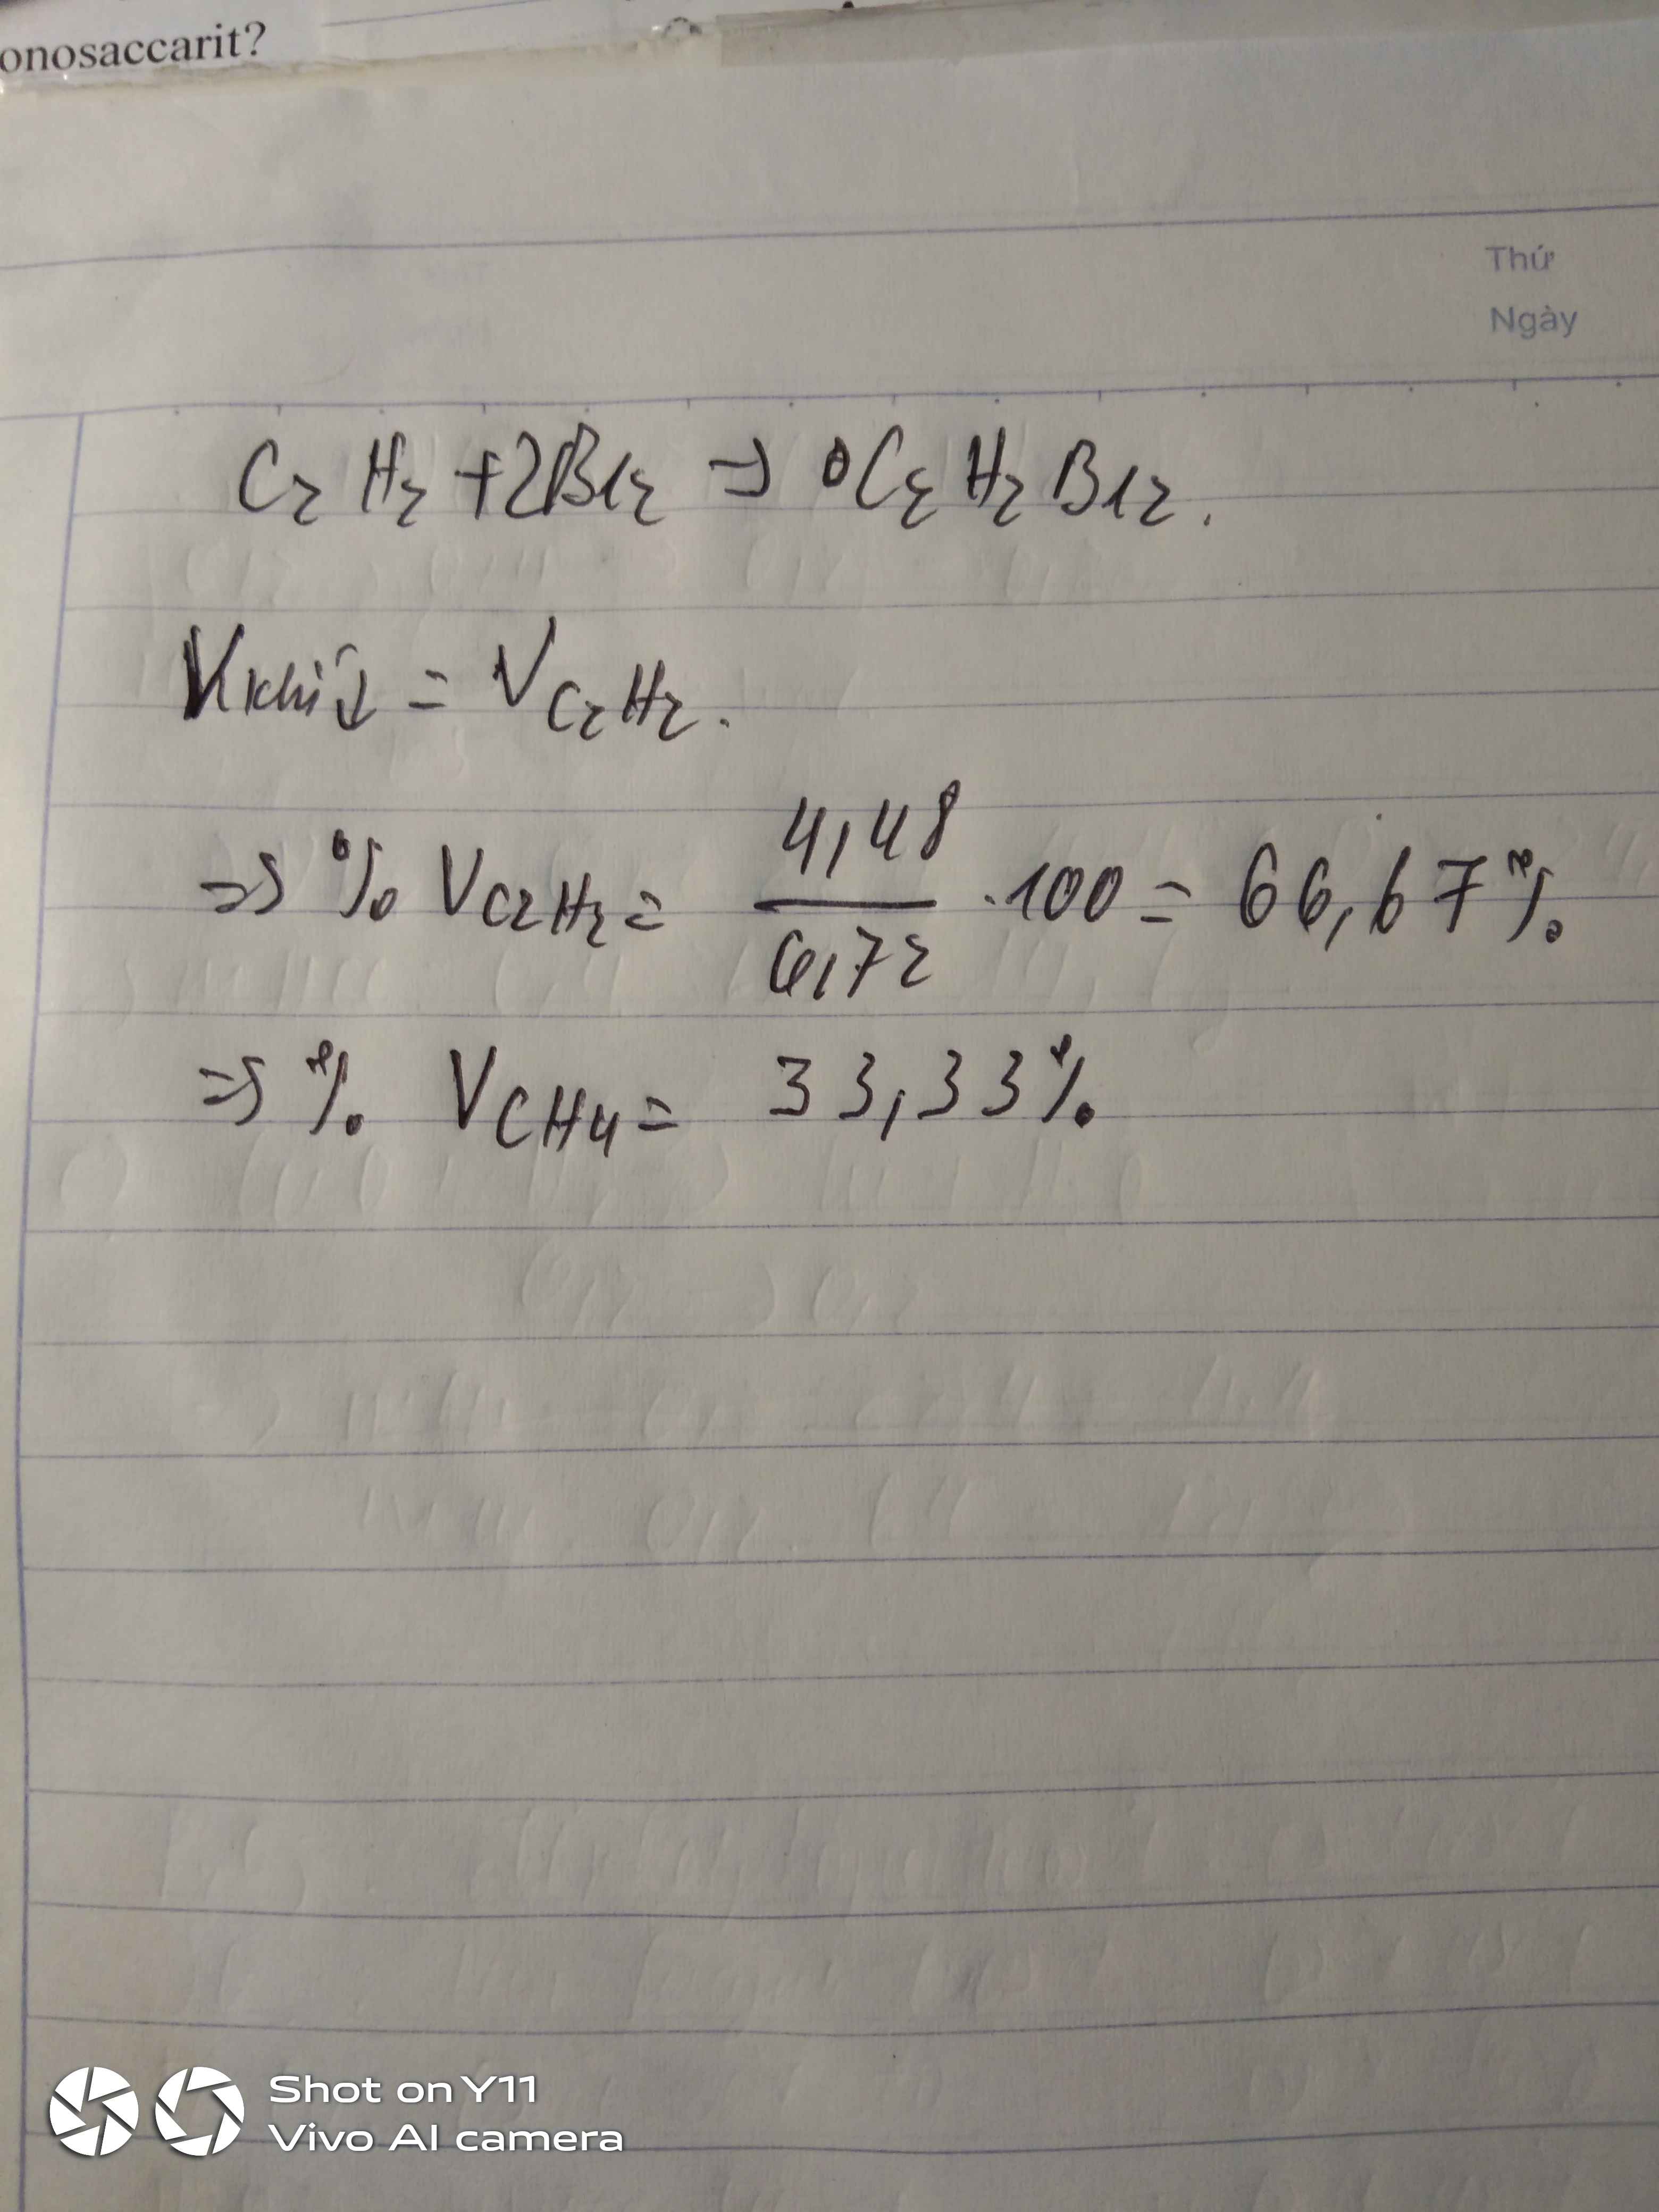 onosaccarit?
Thứ
Ngày
C2H2 + 2Br2 → C2H2Br2.
Vkhí↓ = VC2H2.
=> % VC2H2 = 4,48 / 6,72 . 100 = 66,67%
=> % VCH4 = 33,33%
Shot on Y11
Vivo AI camera